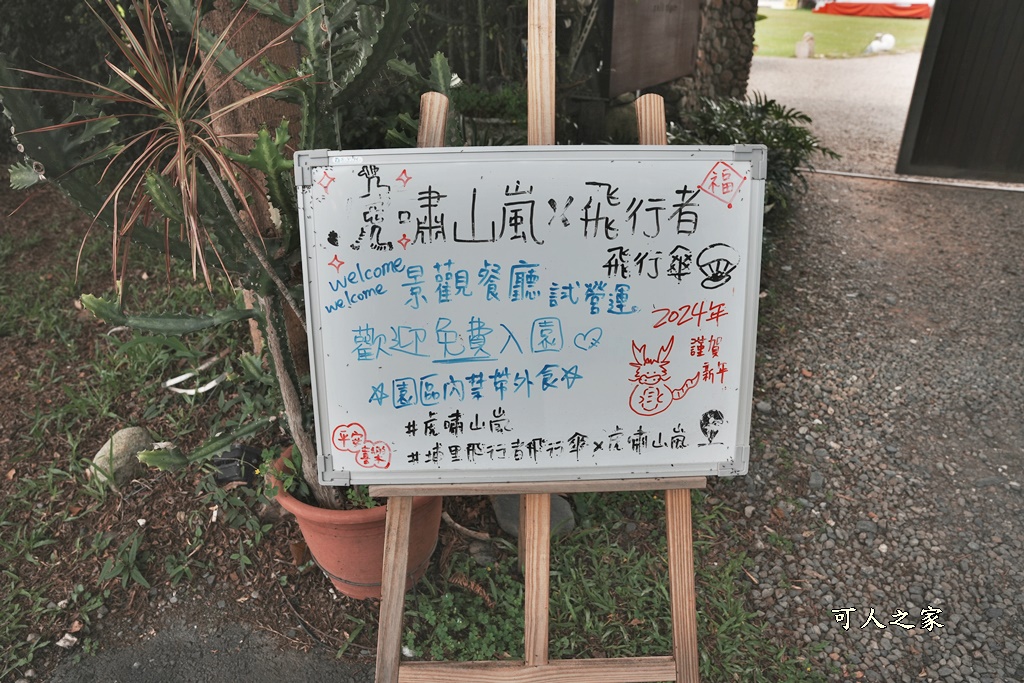 虎嘯山嵐×飛行者
福
飛行傘
welcome
welcome
景觀餐廳試營運。
歡迎免費入園♡
2024年
謹賀
新年
☆園區內禁帶外食☆
#虎嘯山嵐
#埔里飛行者飛行傘×虎嘯山嵐
平安
喜樂
可人之家